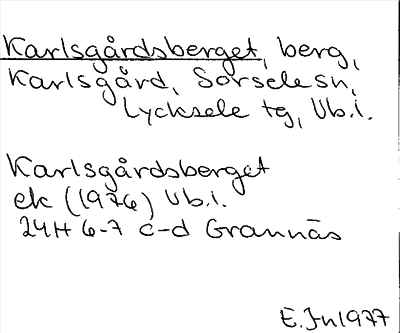 Karlsgårdsberget, berg,
Karlsgård, Sorsele sn,
Lycksele tg, Vb.l.
Karlsgårdsberget
ek (1976) Vb.l.
24H 6-7 c-d Grannäs
E. Jn 1977